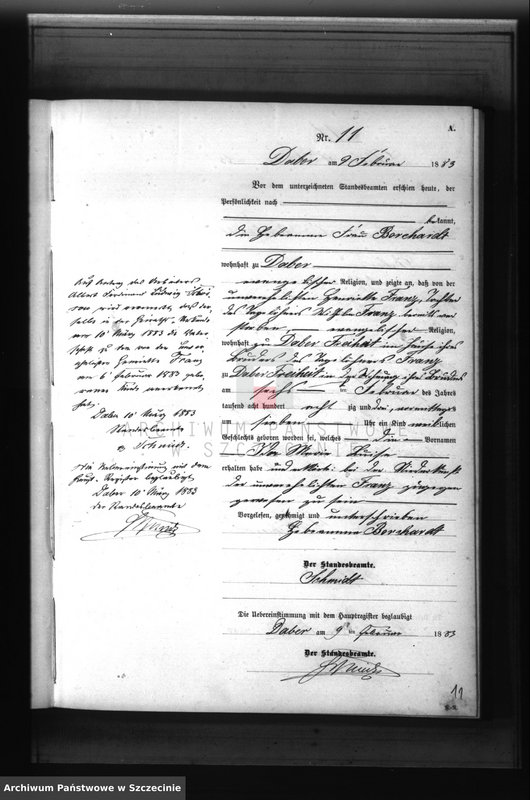 A.
Nr. 11
Daber am 9 Februar 1883
Vor dem unterzeichneten Standesbeamten erschien heute, der
Persönlichkeit nach
bekannt,
die Hebeamme Frau Borchardt
wohnhaft zu Daber
evangelischer Religion, und zeigte an, daß von der
unverehelichten Henriette Franz, Tochter
des Tagelöhners Franz
evangelischer Religion,
wohnhaft zu Daber Freiheit im Hause ihres
Bruders des Tagelöhners Franz
zu Daber Freiheit in der Wohnung ihres Bruders
am sechs ten Februar des Jahres
tausend acht hundert acht zig und drei, vormittags
um sieben Uhr ein Kind weiblichen
Geschlechts geboren worden sei, welches die Vornamen
Ida Marie Louise
erhalten habe und daß sie bei der Niederkunft
der unverehelichten Franz zugegen
gewesen zu sein
Vorgelesen, genehmigt und unterschrieben
Hebeamme Borchardt
Der Standesbeamte.
Schmidt
Die Uebereinstimmung mit dem Hauptregister beglaubigt
Daber am 9 ten Februar 1883
Der Standesbeamte.
Schmidt
Auf Antrag des Arbeiters
Albert Ferdinand Ludwig
wird vermerkt, daß der-
selbe in der Heiraths-Urkunde
vom 10 März 1883 die Vater-
schaft zu dem von der unver-
ehelichten Henriette Franz
am 6 Februar 1883 gebo-
renen Kinde anerkannt
hat.
Daber 10 März 1883
Standesbeamte
Schmidt
Die Uebereinstimmung mit dem
Haupt-Register beglaubigt
Daber 10 März 1883
der Standesbeamte
Schmidt
11
ARCHIWUM PAŃSTWOWE
W SZCZECINIE
Archiwum Państwowe w Szczecinie